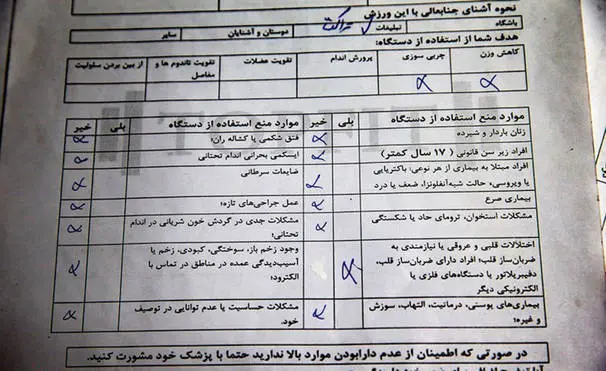 نحوه آشنای جنابعالی با این ورزش
باشگاه تبلیغات تراکت دوستان و آشنایان سایر
هدف شما از استفاده از دستگاه:
کاهش وزن چربی سوزی پرورش اندام تقویت عضلات تقویت تاندوم ها و مفاصل از بین بردن سلولیت
موارد منع استفاده از دستگاه بلی خیر موارد منع استفاده از دستگاه بلی خیر
زنان باردار و شیرده
فتق شکمی یا کشاله ران؛
افراد زیر سن قانونی ( ۱۷ سال کمتر)
ایسکمی بحرانی اندام تحتانی
افراد مبتلا به بیماری از هر نوعی، باکتریایی
یا ویروسی، حالت شبه‌آنفلونزا، ضعف یا درد
ضایعات سرطانی
بیماری صرع
عمل جراحی‌های تازه؛
مشکلات استخوان، ترومای حاد یا شکستگی
مشکلات جدی در گردش خون شریانی در اندام
تحتانی؛
اختلالات قلبی و عروقی یا نیازمندی به
ضربان‌ساز قلب؛ افراد دارای ضربان‌ساز قلب،
دفیبریلاتور یا دستگاه‌های فلزی یا
الکترونیکی دیگر
وجود زخم باز، سوختگی، کبودی، زخم یا
آسیب‌دیدگی عمده در مناطق در تماس با
الکترود؛
بیماری‌های پوستی، درمانیت، التهاب، سوزش
و غیره؛
مشکلات حساسیت یا عدم توانایی در توصیف
خود.
در صورتی که اطمینان از عدم دارابودن موارد بالا ندارید حتما با پزشک خود مشورت کنید.